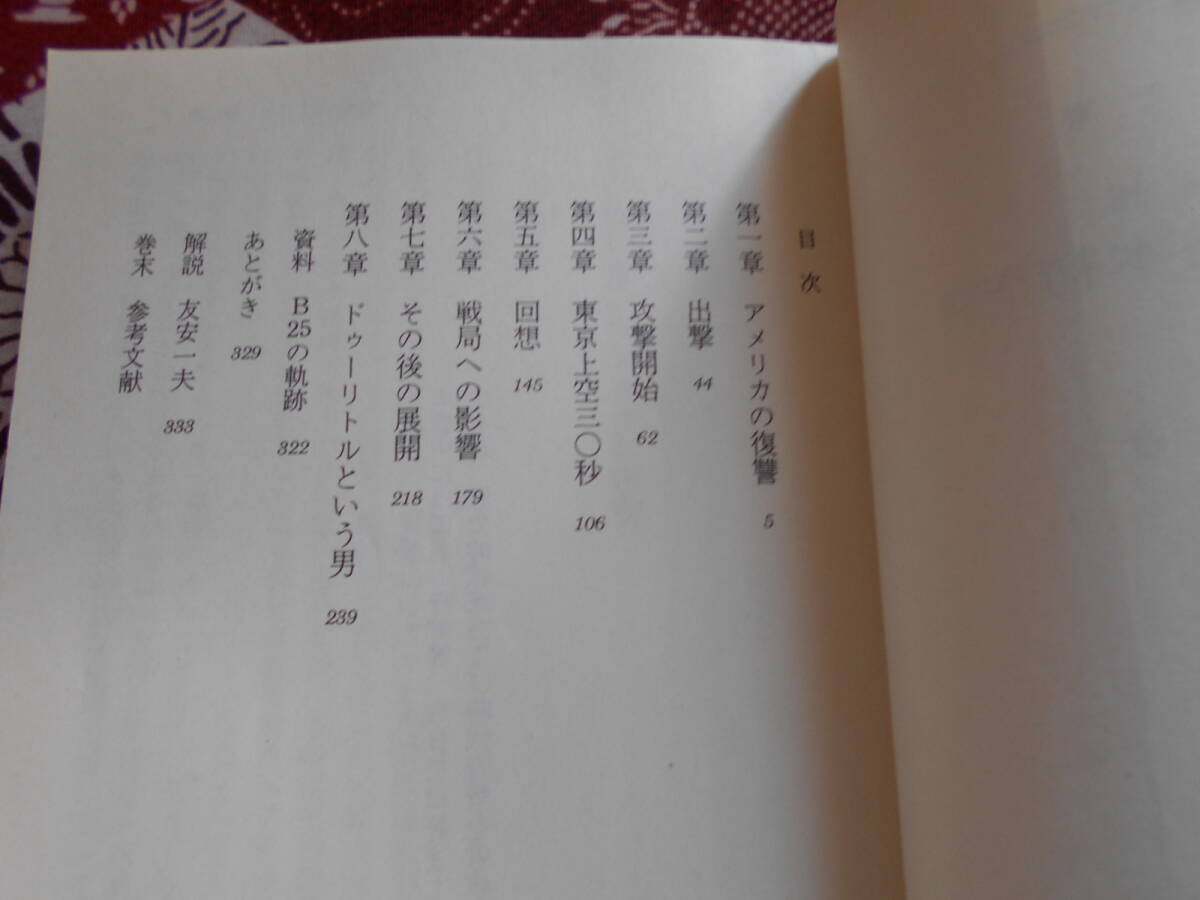 目次
第一章 アメリカの復讐 5
第二章 出撃 44
第三章 攻撃開始 62
第四章 東京上空三〇秒 106
第五章 回想 145
第六章 戦局への影響 179
第七章 その後の展開 218
第八章 ドゥーリトルという男 239
資料 B25の軌跡 322
あとがき 329
解説 友安一夫 333
巻末 参考文献